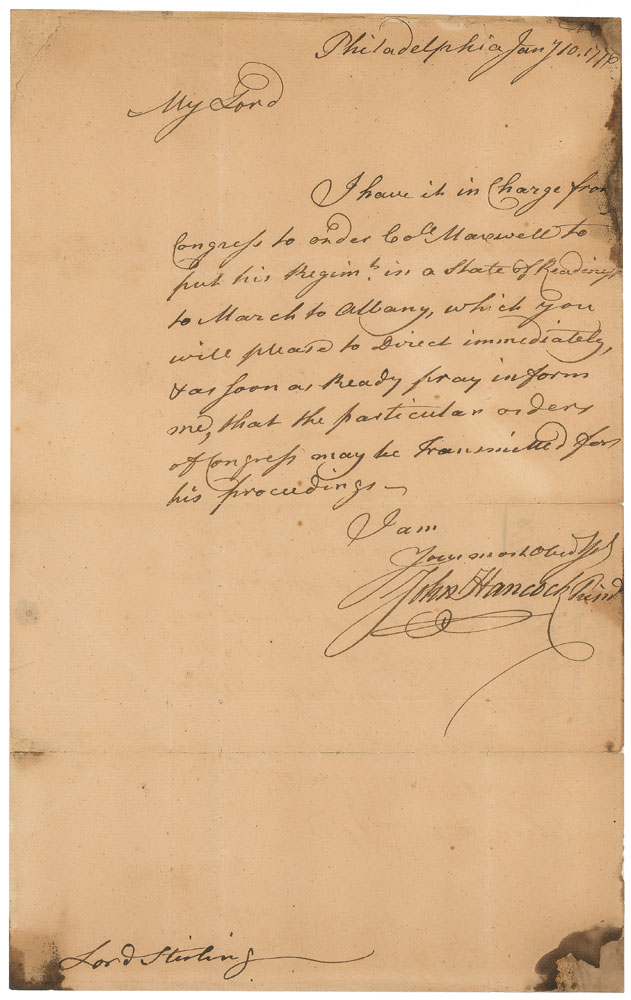 Philadelphia Jany 10. 1776
My Lord
I have it in Charge from
Congress to order Coll. Maxwell to
put his Regimt. in a State of Readiness
to March to Albany, which you
will please to Direct immediately,
& as soon as Ready pray inform
me, that the particular orders
of Congress may be Transmitted for
his proceedings—
I am
Your most Obed
John Hancock Presid
Lord Stirling